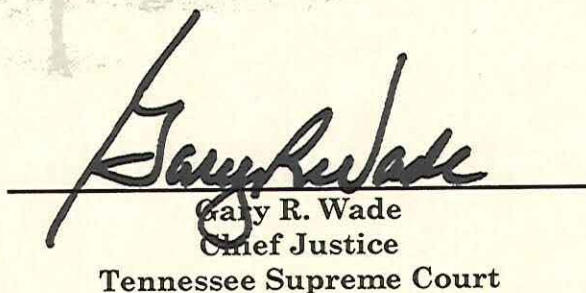 Gary R. Wade
Gary R. Wade
Chief Justice
Tennessee Supreme Court